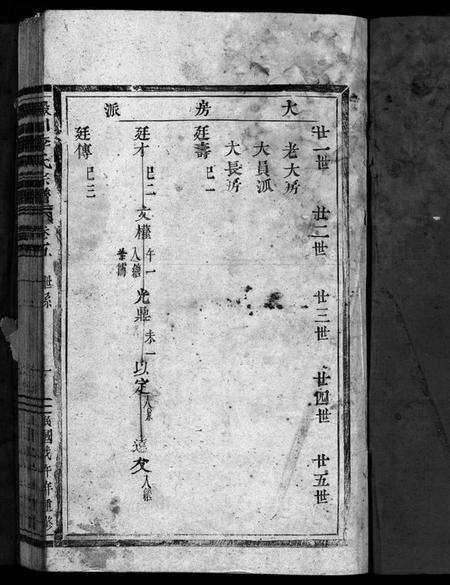 大房派
廿一世 廿二世 廿三世 廿四世 廿五世
老大房
大員派
大長房
廷壽 巳一
廷才 巳二 文權 午一 入繼 光照 未一 以定 入系 遠文 入繼
廷傳 巳三
李氏宗譜 卷五 世系 一 民國戊午年重修